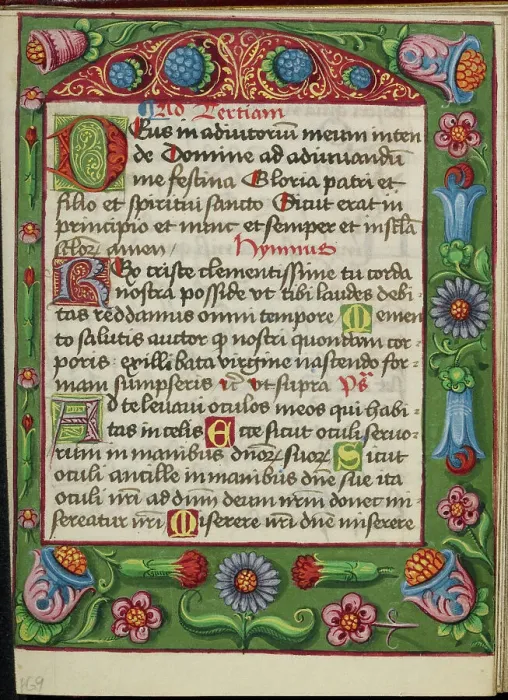 Ad Tertiam
Deus in adiutoriū meum inten
de Domine ad adiuuandū
me festina Gloria patri et
filio et spiritui sancto Sicut erat in
principio et nunc et semper et in sc̄la
sc̄lor̄ amen / Hymnus
Rex criste clementissime tu corda
nostra posside vt tibi laudes debi-
tas reddamus omni tempore Memen
to salutis auctor q nostri quondam cor-
poris exilli bata virgine nascendo for-
mam sumpseris ꝛc̄ vt supra ps̄
Ad te leuaui oculos meos qui habi-
tas in celis Ecce sicut oculi seruo-
rum in manibus dn̄oꝝ suoꝝ Sicut
oculi ancille in manibus dn̄e sue ita
oculi nr̄i ad dnm deum nr̄m donec mi-
sereatur nr̄i Miserere nr̄i dn̄e miserere
169